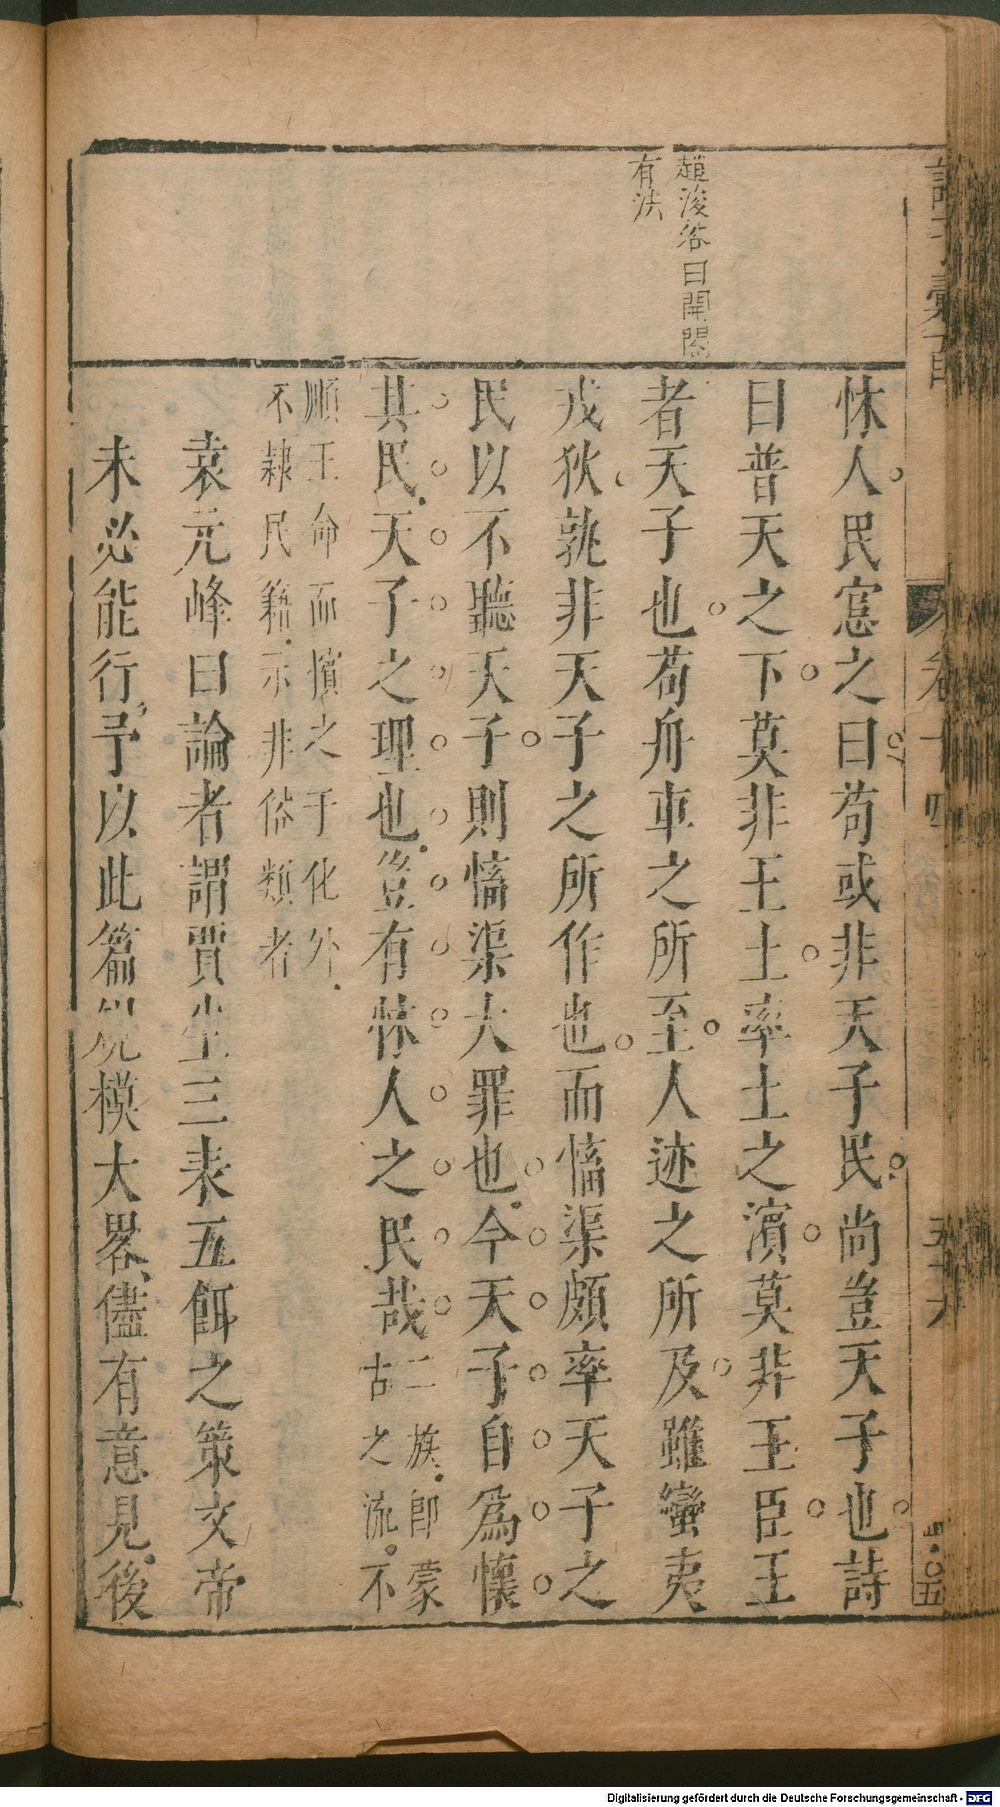 趙浚谷曰開闔
有法
怵人民窓之曰苟或非天子民尚豈天子也詩
曰普天之下莫非王土率土之濱莫非王臣王
者天子也苟舟車之所至人迹之所及雖蠻夷
戎狄孰非天子之所作也而慉渠頗率天子之
民以不聽天子則慉渠大罪也今天子自爲懷
其民天子之理也豈有怵人之民哉二族即蒙
古之流不
順王命而擯之于化外
不隸民籍示非俗類者
袁元峰曰論者謂賈生三表五餌之策文帝
未必能行予以此篇規模大畧儘有意見後
卷十四
五十六
Digitalisierung gefördert durch die Deutsche Forschungsgemeinschaft - DFG